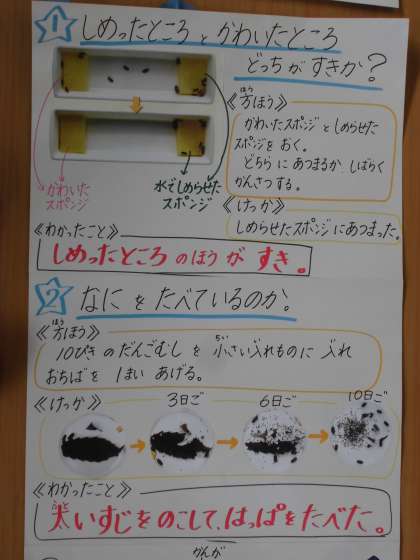 1 しめったところ と かわいたところ
どっちが すきか？
《方ほう》
ほう
かわいたスポンジ としめらせた
スポンジを おく。
どちら に あつまるか、しばらく
かんさつする。
かわいた
スポンジ
水でしめらせた
スポンジ
《けっか》
しめらせたスポンジ にあつまった。
《わかったこと》
しめったところ のほう が すき。
2 なに を たべているのか。
ほう
《方ほう》
10ぴき のだんごむし を 小さい入れものに 入れ
ちい
おちばを 1まい あげる。
《けっか》
3日ご
6日ご
10日ご
《わかったこと》
ふと
太いすじをのこして、はっぱをたべた。
かんが